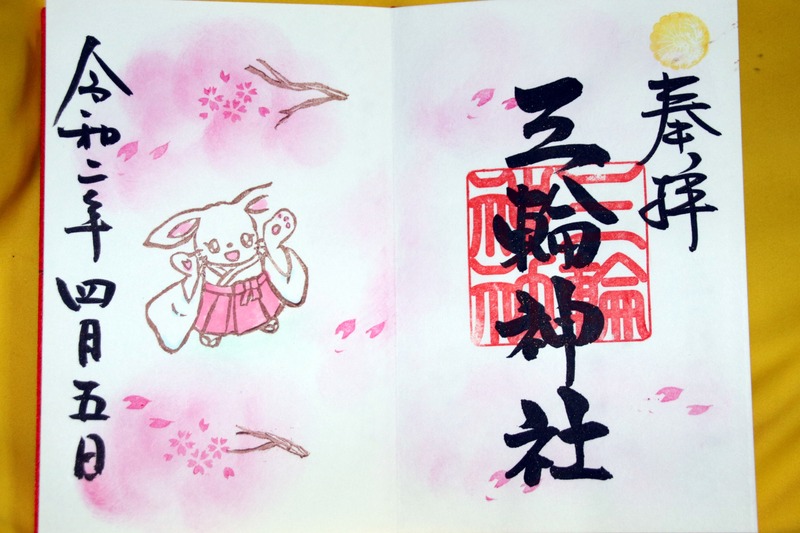 奉拝
三輪神社
三輪神社
令和二年四月五日